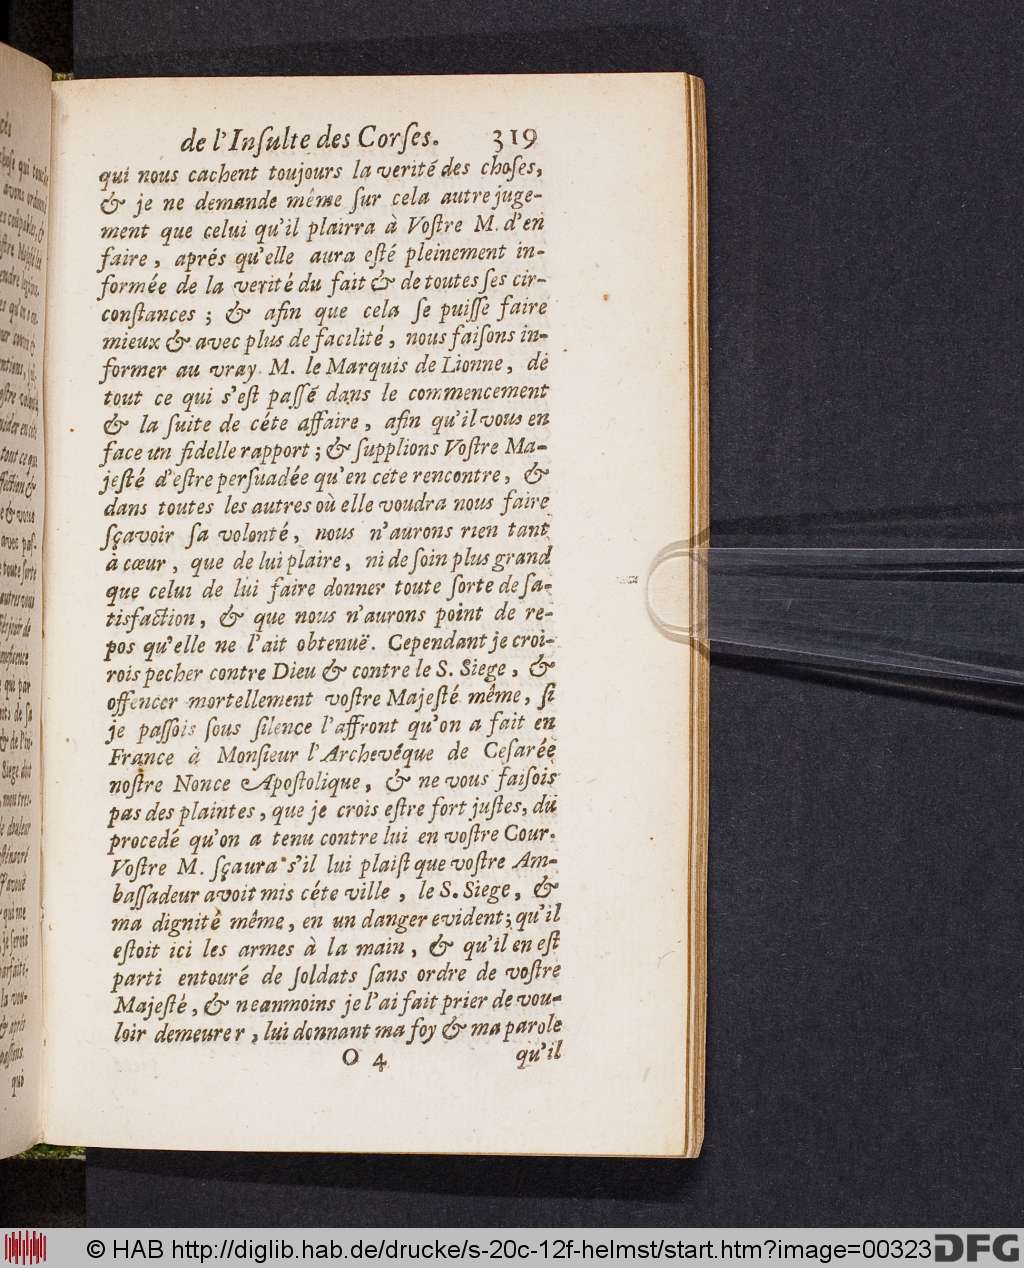 de l'Inſulte des Corſes. 319
qui nous cachent toujours la verité des choſes,
& je ne demande même ſur cela autre juge-
ment que celui qu'il plairra à Voſtre M. d'en
faire, aprés qu'elle aura eſté pleinement in-
formée de la verité du fait & de toutes ſes cir-
conſtances ; & afin que cela ſe puiſſe faire
mieux & avec plus de facilité, nous faiſons in-
former au vray M. le Marquis de Lionne, de
tout ce qui s'eſt paſſé dans le commencement
& la ſuite de céte affaire, afin qu'il vous en
face un fidelle rapport ; & ſupplions Voſtre Ma-
jeſté d'eſtre perſuadée qu'en céte rencontre, &
dans toutes les autres où elle voudra nous faire
ſçavoir ſa volonté, nous n'aurons rien tant
à cœur, que de lui plaire, ni de ſoin plus grand
que celui de lui faire donner toute ſorte de ſa-
tisfaction, & que nous n'aurons point de re-
pos qu'elle ne l'ait obtenuë. Cependant je croi-
rois pecher contre Dieu & contre le S. Siege, &
offencer mortellement voſtre Majeſté même, ſi
je paſſois ſous ſilence l'affront qu'on a fait en
France à Monſieur l'Archevéque de Ceſarée
noſtre Nonce Apoſtolique, & ne vous faiſois
pas des plaintes, que je crois eſtre fort juſtes, du
procedé qu'on a tenu contre lui en voſtre Cour.
Voſtre M. ſçaura s'il lui plaiſt que voſtre Am-
baſſadeur avoit mis céte ville, le S. Siege, &
ma dignité même, en un danger evident; qu'il
eſtoit ici les armes à la main, & qu'il en eſt
parti entouré de ſoldats ſans ordre de voſtre
Majeſté, & neanmoins je l'ai fait prier de vou-
loir demeurer, lui donnant ma foy & ma parole
O 4 qu'il
© HAB http://diglib.hab.de/drucke/s-20c-12f-helmst/start.htm?image=00323
DFG